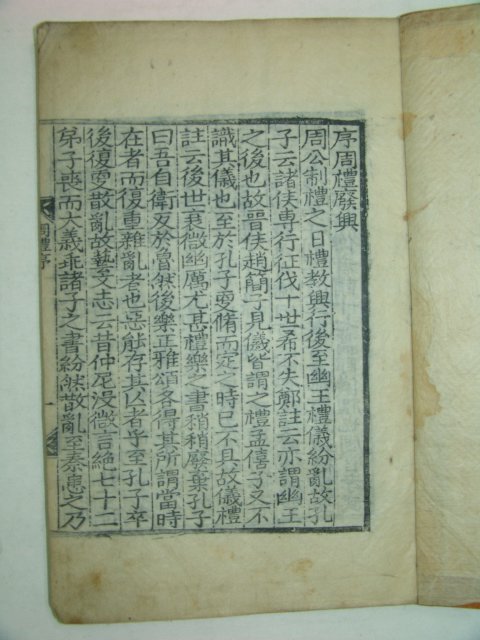 序周禮廢興
周公制禮之日禮教興行後至幽王禮儀紛亂故孔
子云諸侯專行征伐十世希不失鄭註云亦謂幽王
之後也故晉侯趙簡子見儀皆謂之禮孟僖子又不
識其儀也至於孔子更脩而定之時已不具故儀禮
註云後世衰微幽厲尤甚禮樂之書稍稍廢棄孔子
曰吾自衛反於魯然後樂正雅頌各得其所謂當時
在者而復重雜亂者也惡能存其亡者乎至孔子卒
後復更散亂故藝文志云昔仲尼沒微言絕七十二
弟子喪而大義乖諸子之書紛然散亂至秦患之乃
周禮序
一